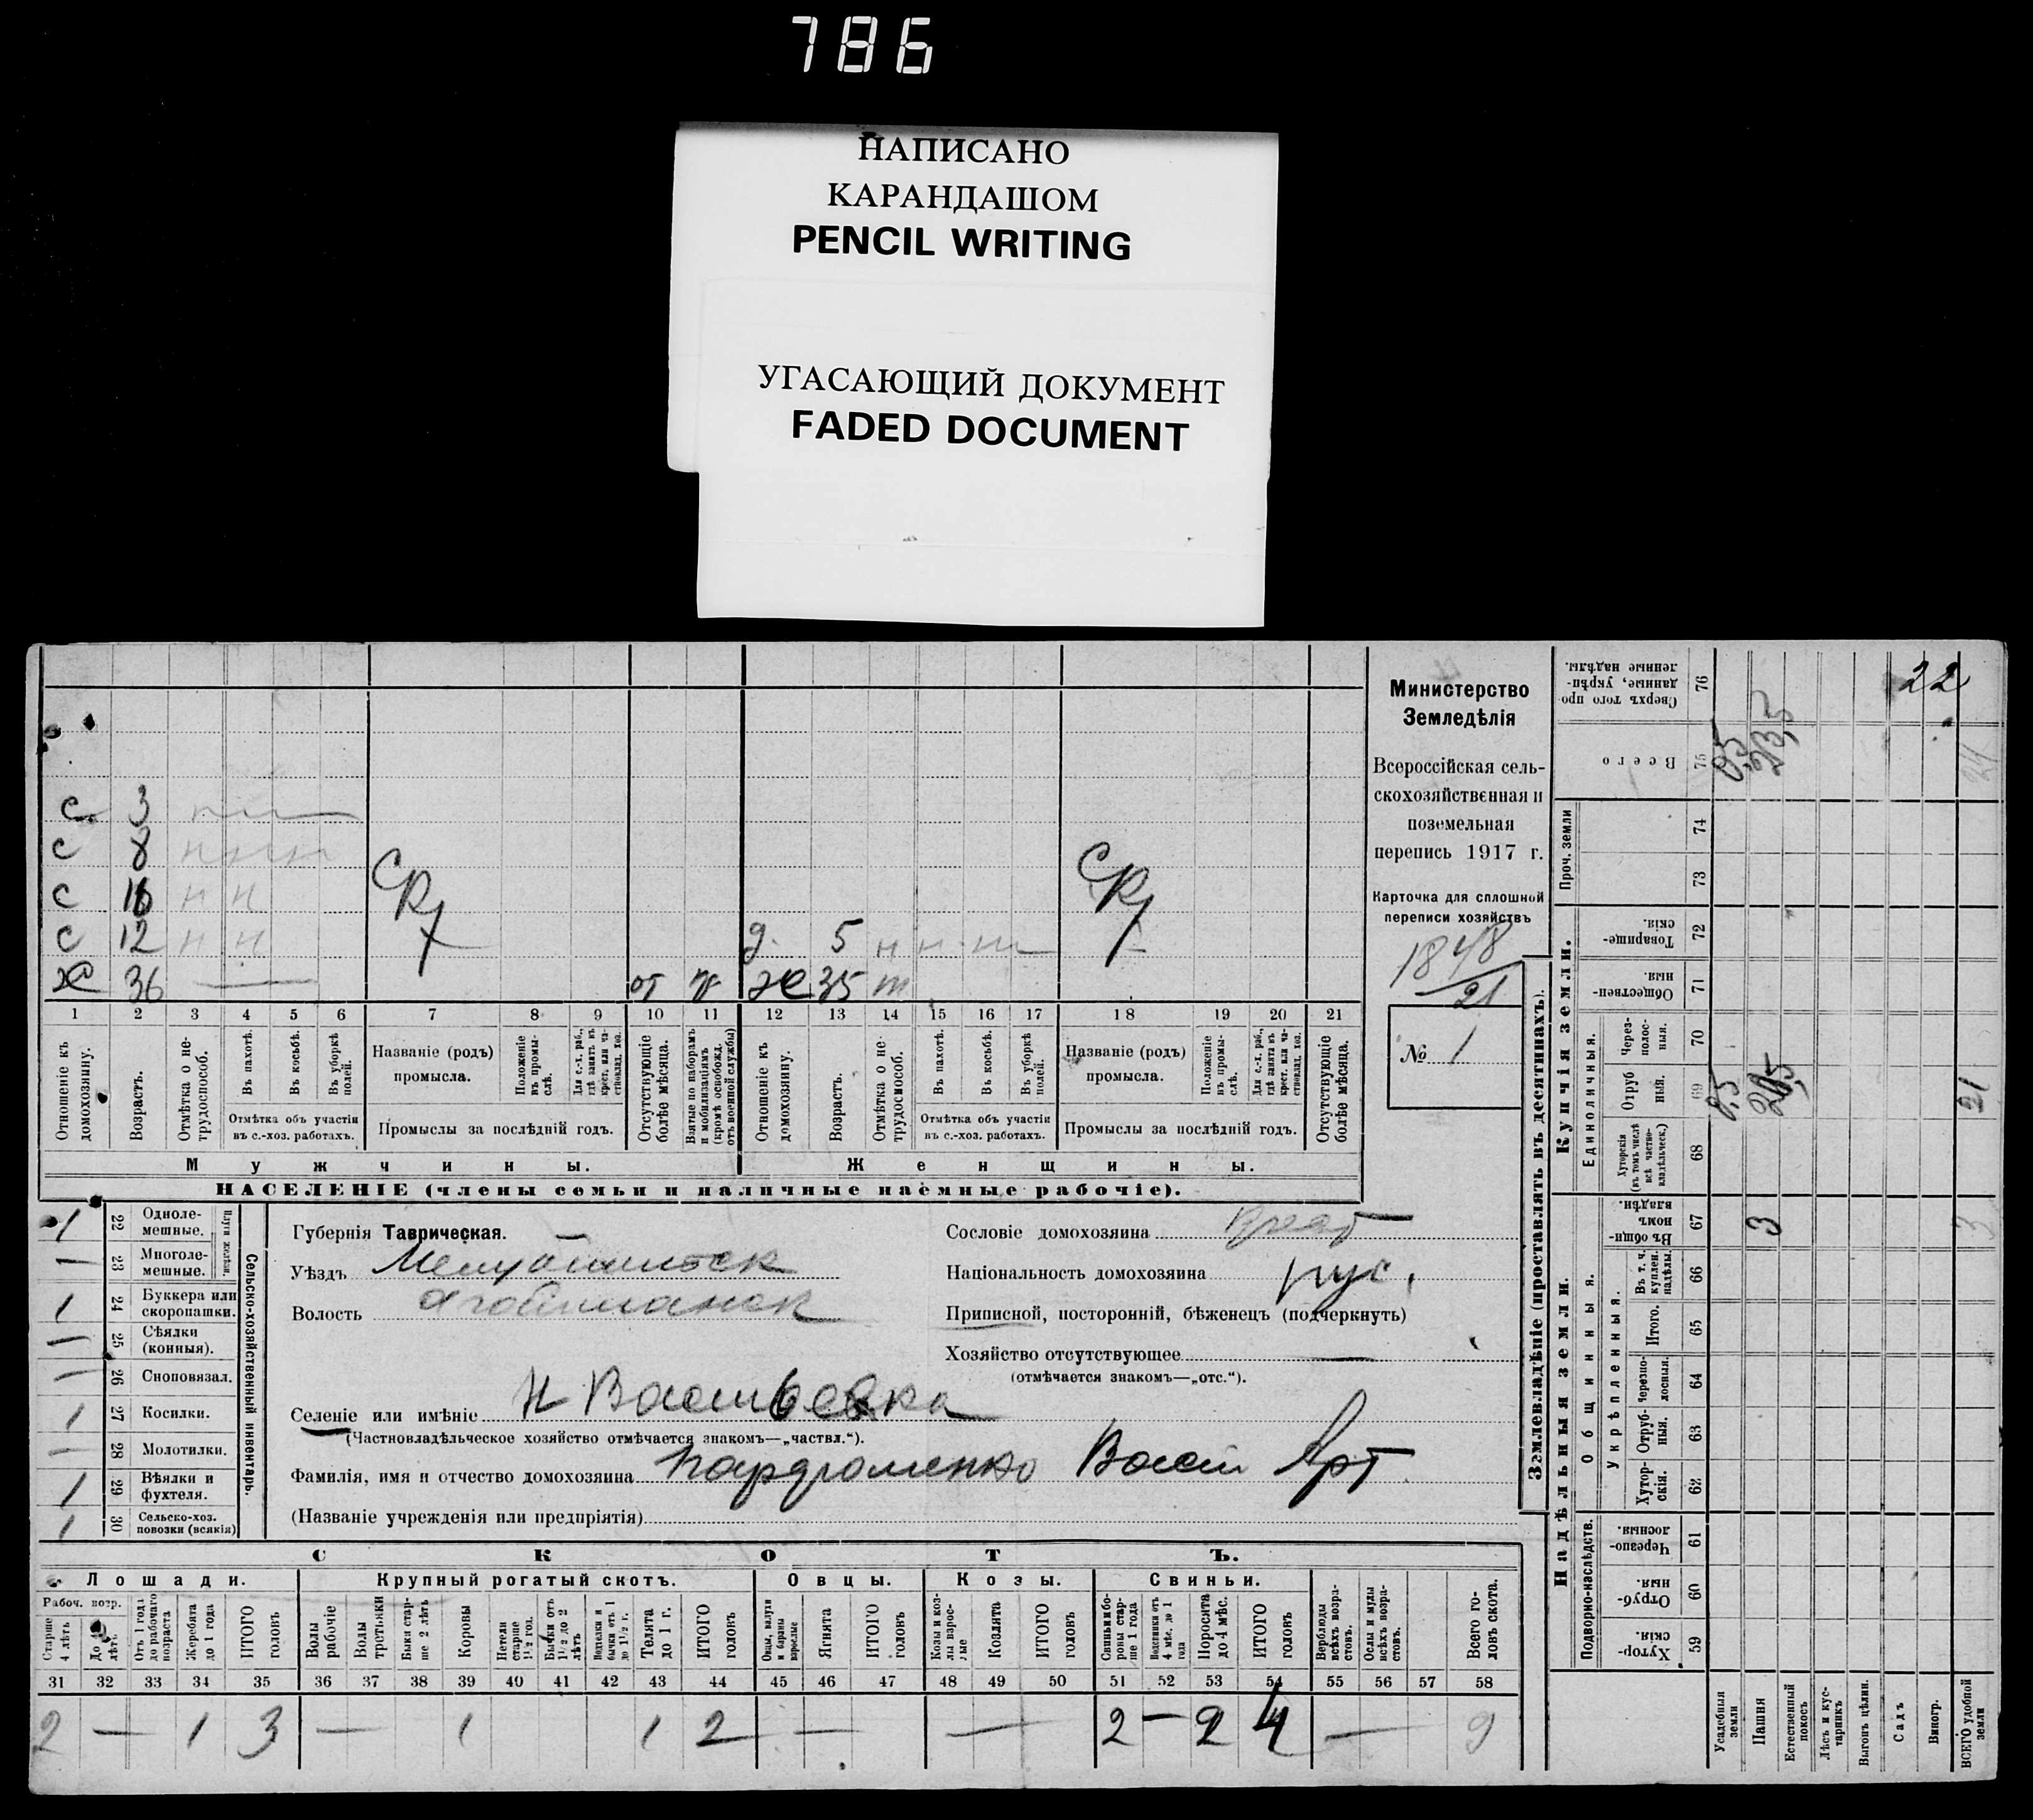 786
НАПИСАНО
КАРАНДАШОМ
PENCIL WRITING
УГАСАЮЩИЙ ДОКУМЕНТ
FADED DOCUMENT
Министерство
Земледѣлія
Всероссійская сель-
скохозяйственная и
поземельная
перепись 1917 г.
Карточка для сплошной
переписи хозяйствъ
1848
21
№ 1
с 3
с 8 н н н н
с 16 н н
с 12 н н д. 5 н н
36 от ж 35
1 2 3 4 5 6 7 8 9 10 11 12 13 14 15 16 17 18 19 20 21
Отношеніе къ домохозяину.
Возрастъ.
Отмѣтка о не-трудоспособ.
Въ пахотѣ.
Въ косьбѣ.
Въ уборкѣ полей.
Отмѣтка объ участіи
въ с.-хоз. работахъ.
Названіе (родъ)
промысла.
Положеніе въ промы-слѣ.
Для с.-х. раб., гдѣ занятъ въ крест. или ча-стновлад. хоз.
Промыслы за послѣдній годъ.
Отсутствующіе болѣе мѣсяца.
Взятые по наборамъ и мобилизаціямъ (кромѣ освобожд. отъ военной службы)
Отношеніе къ домохозяину.
Возрастъ.
Отмѣтка о не-трудоспособ.
Въ пахотѣ.
Въ косьбѣ.
Въ уборкѣ полей.
Отмѣтка объ участіи
въ с.-хоз. работахъ.
Названіе (родъ)
промысла.
Положеніе въ промы-слѣ.
Для с.-х. раб., гдѣ занята въ крест. или ча-стновлад. хоз.
Промыслы за послѣдній годъ.
Отсутствующіе болѣе мѣсяца.
Мужчины. Женщины.
НАСЕЛЕНІЕ (члены семьи и наличные наемные рабочіе).
Сельско-хозяйственный инвентарь.
1 22 Одноле-мешные.
— 23 Многоле-мешные.
1 24 Буккера или скоропашки.
— 25 Сѣялки (конныя).
— 26 Сноповязал.
1 27 Косилки.
— 28 Молотилки.
1 29 Вѣялки и фухтеля.
1 30 Сельско-хоз. повозки (всякія)
Губернія Таврическая.
Уѣздъ
Волость
Селеніе или имѣніе Н Васильевка
(Частновладѣльческое хозяйство отмѣчается знакомъ—„частвл.“).
Фамилія, имя и отчество домохозяина Арт
(Названіе учрежденія или предпріятія)
Сословіе домохозяина
Національность домохозяина рус.
Приписной, посторонній, бѣженецъ (подчеркнуть)
Хозяйство отсутствующее —
(отмѣчается знакомъ—„отс.“).
СКОТЪ.
Лошади. Крупный рогатый скотъ. Овцы. Козы. Свиньи.
Рабоч. возр.
Старше 4 лѣтъ
До 4 лѣтъ.
Отъ 1 года до рабочаго возраста
Жеребята до 1 года
ИТОГО головъ
Волы рабочіе
Волы третьяки
Быки стар-ше 2 лѣтъ
Коровы
Нетели старше 1½ год.
Бычки отъ 1½ до 2 лѣтъ
Телята до 1 г.
ИТОГО головъ
Овцы, валухи и бараны взрослые
Ягнята
ИТОГО головъ
Козы и коз-лы взрос-лые
Козлята
ИТОГО головъ
Свиньи и бо-ровы стар-ше 1 года
Поросята до 4 мѣс.
ИТОГО головъ
Верблюды всѣхъ возра-стовъ.
Ослы и мулы всѣхъ возра-стовъ.
Всего го-ловъ скота.
31 32 33 34 35 36 37 38 39 40 41 42 43 44 45 46 47 48 49 50 51 52 53 54 55 56 57 58
2 — 1 3 — 1 1 2 — — 2 — 2 4 — 9
Землевладѣніе (проставлять въ десятинахъ).
Купчія земли.
Надѣльныя земли.
Сверхъ того про-данные, укрѣп-ленные надѣлы. 76
Всего 75 0,5 23,5
Проч. земли 74 73
Товарище-скія. 72
Обществен-ныя. 71
Единоличныя.
Через-полос-ныя. 70
Отруб-ный. 69 0,5
Хуторскія (въ томъ числѣ всѣ частно-владѣльческ.) 68
Общинныя.
Въ общин-номъ владѣн. 67 3
Укрѣпленныя.
Въ т. ч. куплен. надѣлы. 66
Итого. 65
Черезпо-лосныя. 64
Отруб-ныя. 63
Хутор-скія. 62
Подворно-наслѣдств.
Черезпо-лосныя. 61
Отруб-ныя. 60
Хутор-скія. 59
Усадебныя земли
Пашня
Естественный покосъ
Лѣсъ и кус-тарникъ
Выгонъ цѣлин.
Садъ
Виногр.
ВСЕГО удобной земли
22
21
3